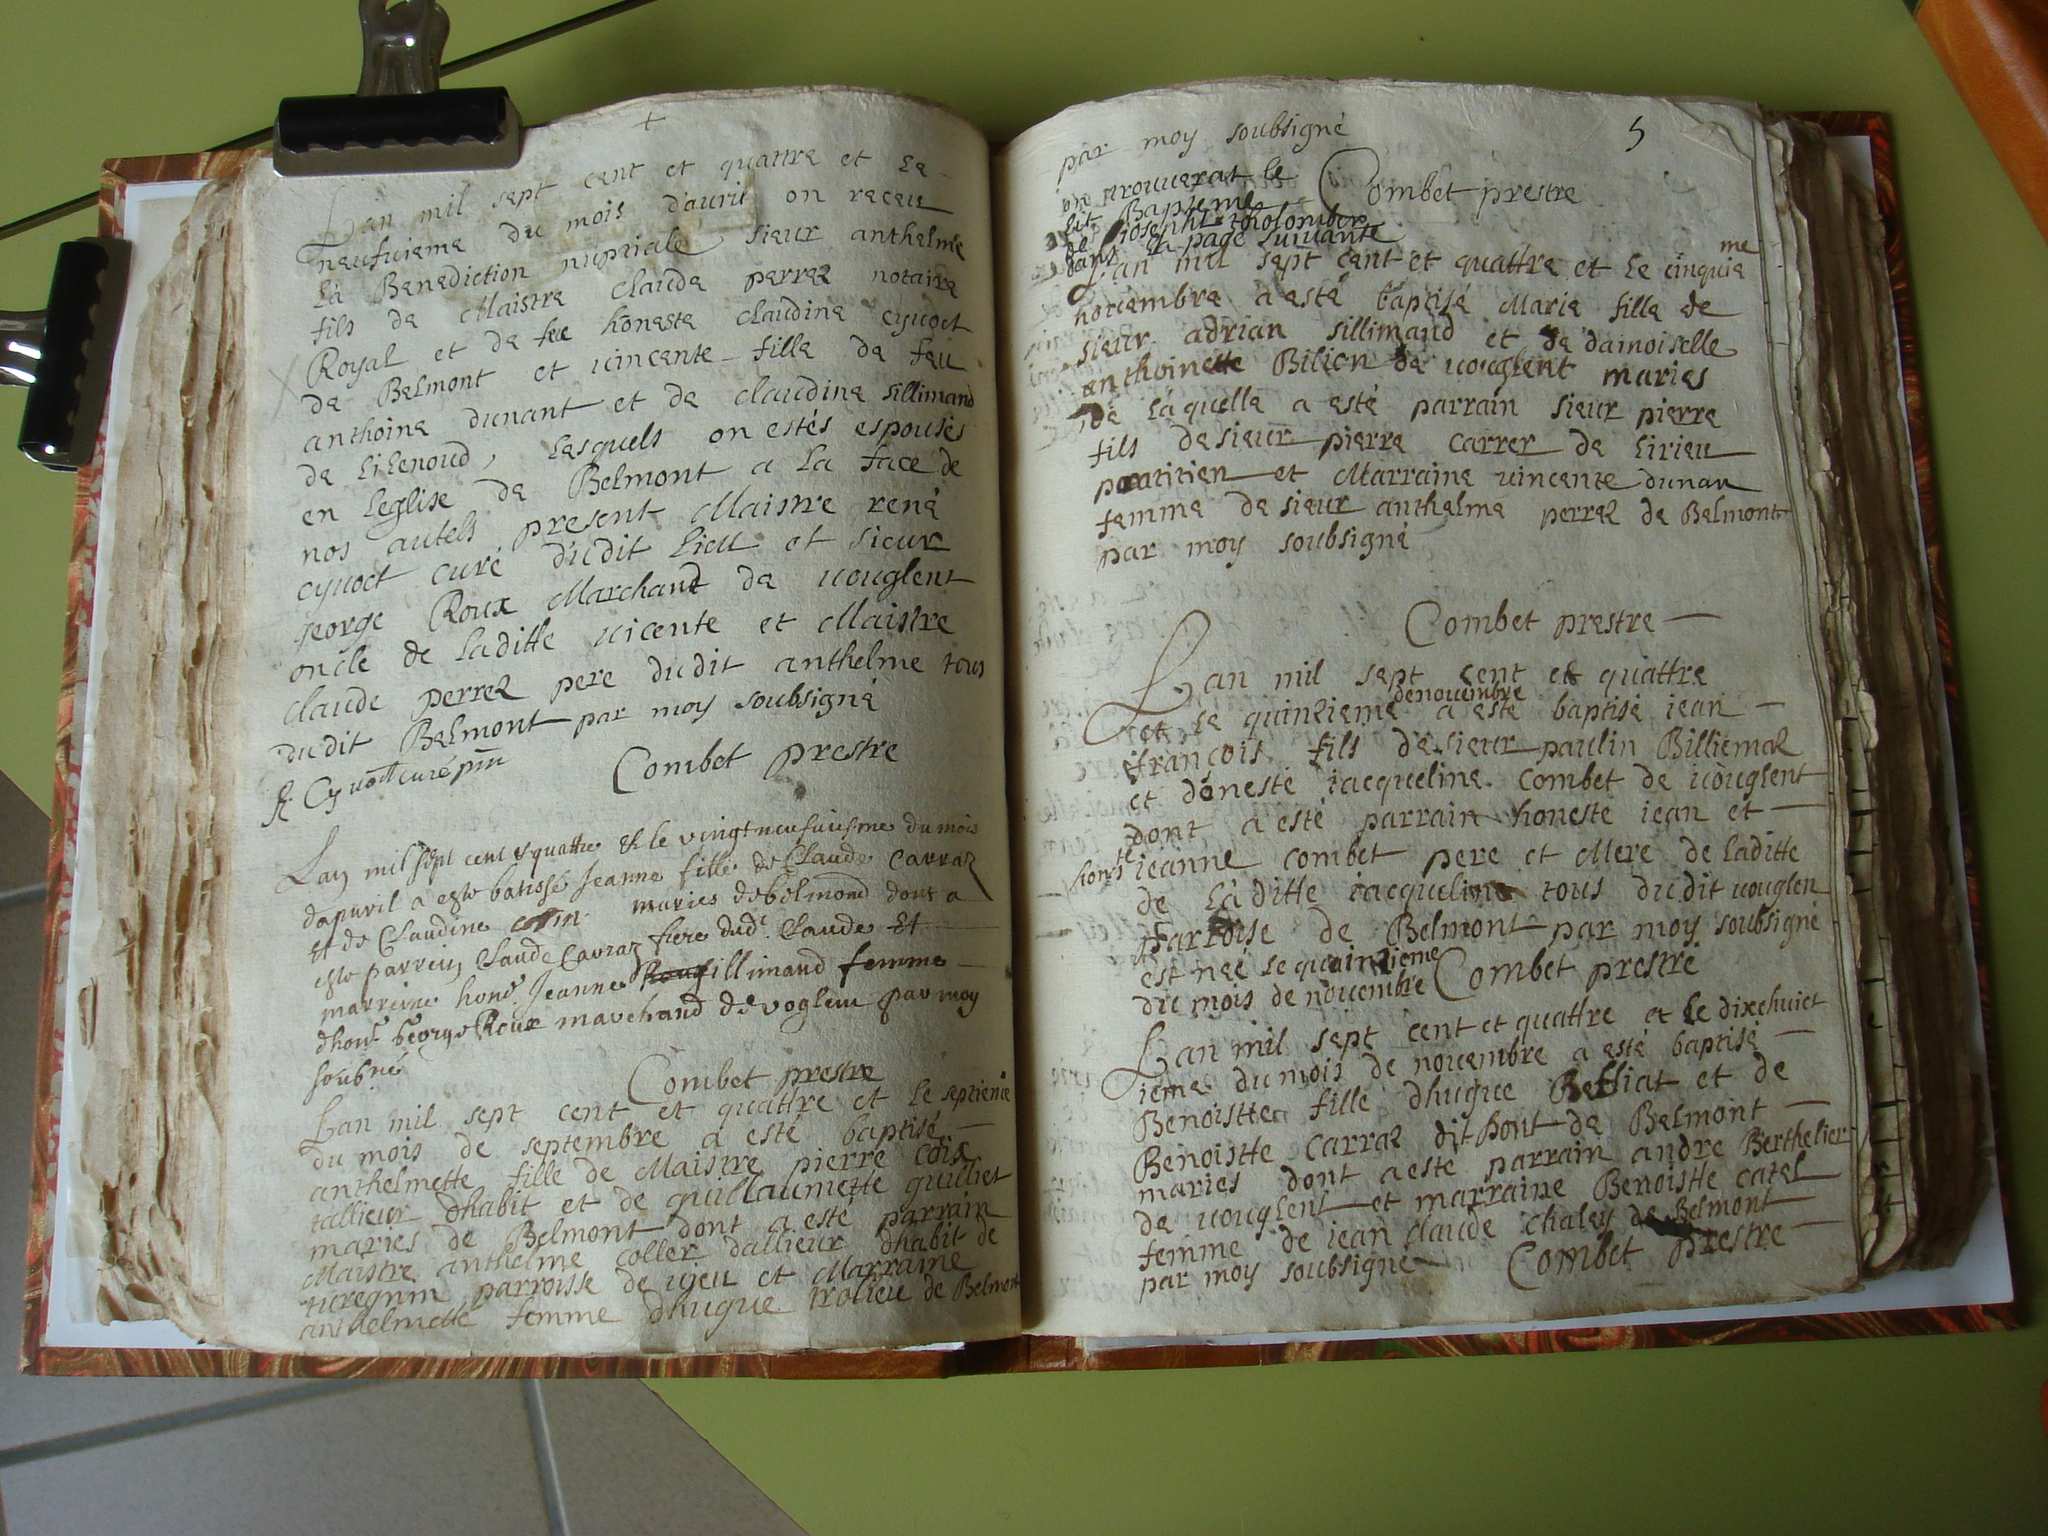 +
Lan mil sept cent et quattre et le
neufuieme du mois dauril on receu
la Benediction nuptiale sieur anthelme
fils de Maistre claude perrez notaire
Royal et de feu honeste claudine cyuoct
de Belmont et uincente fille de feu
anthoine dunant et de claudine sillimand
de lilenoud, lesquels on estés espousés
en leglise de Belmont a la face de
nos autels present Maistre rené
cyuoct curé dudit lieu et sieur
george Roux Marchant de uouglent
oncle de laditte uicente et Maistre
claude perrez pere dudit anthelme tous
dudit Belmont par moy soubsigné
Cyuoct curé pnt
Combet prestre
Lan mil sept cent & quattre & le vingtneufuiesme du mois
dapuril a esté batissé Jeanne fille de Claude Carraz
et de Claudine colin maries de belmond dont a
esté parrein Claude Carraz frere dudt. Claude Et
marreine honé. Jeanne sillimand femme
dhoné. George Roux marchand de voglent par moy
soubné
Combet prestre
Lan mil sept cent et quattre et le septieme
du mois de septembre a esté baptisé
anthelmette fille de Maistre pierre Coix
tallieur dhabit et de guillaumette guilliet
maries de Belmont dont a esté parrain
Maistre anthelme coller dallieur dhabit de
uiregnin parroisse de ujeu et Marraine
anthelmette femme dhugue trolieu de Belmont
5
par moy soubsigné
Combet prestre
on trouuerat le
dit Bapteme
de joseph tholomber
dans la page suiuante
Lan mil sept cent et quattre et le cinquieme
nouembre a esté baptisé Marie fille de
sieur adrian sillimand et de damoiselle
anthoinette Bilion de uouglent maries
de laquelle a esté parrain sieur pierre
fils de sieur pierre carrer de lirieu
pratitien et Marraine uincente dunan
femme de sieur anthelme perrez de Belmont
par moy soubsigné
Combet prestre
Lan mil sept cent et quattre
et le quinzieme de nouembre a esté baptisé iean
francois fils de sieur paulin Billiemaz
et doneste iacqueline combet de uouglent
dont a esté parrain honeste iean et
honeste ieanne combet pere et Mere de laditte
de laditte iacqueline tous dudit uouglen
parroise de Belmont par moy soubsigné
est neé le quainzieme
du mois de nouembre Combet prestre
Lan mil sept cent et quattre et le dixehuict
ieme du mois de nouembre a esté baptisé
Benoistte fille dhugue Belliat et de
Benoistte carraz dit hont de Belmont
maries dont a esté parrain andre Berthelier
de uouglent et marraine Benoistte catel
femme de iean claude chaley de Belmont
par moy soubsigné Combet prestre